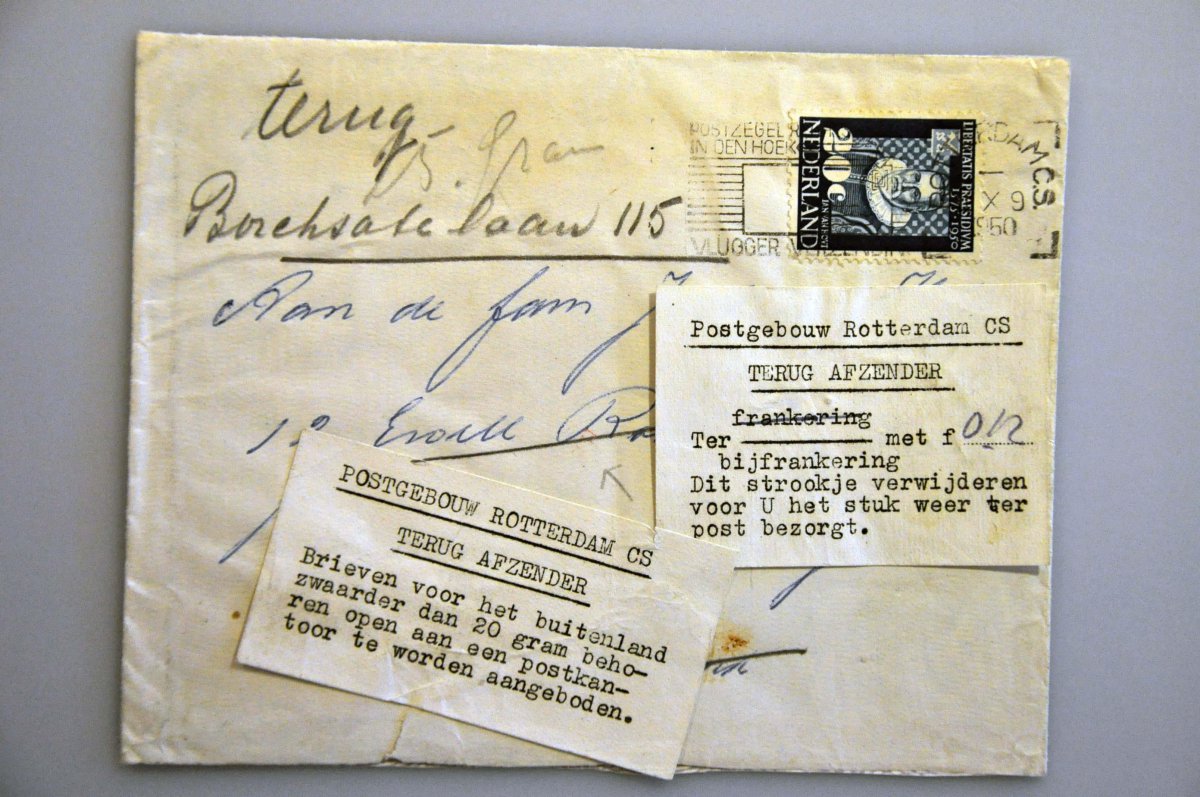 terug
25. gram
Borchsate laan 115
POSTZEGEL R
IN DEN HOEK
VLUGGER
RDAM C.S.
1
X 9
1950
NEDERLAND
20c
JAN VAN HOUT
LIBERTATIS PRAESIDIVM
1575·1950
Aan de fam
Postgebouw Rotterdam CS
TERUG AFZENDER
frankering
Ter met f 0.12
bijfrankering
Dit strookje verwijderen
voor U het stuk weer ter
post bezorgt.
POSTGEBOUW ROTTERDAM CS
TERUG AFZENDER
Brieven voor het buitenland
zwaarder dan 20 gram beho-
ren open aan een postkan-
toor te worden aangeboden.